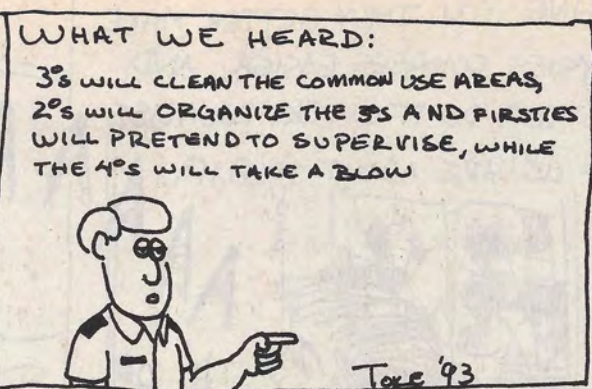 WHAT WE HEARD:
3°S WILL CLEAN THE COMMON USE AREAS,
2°S WILL ORGANIZE THE 3°S AND FIRSTIES
WILL PRETEND TO SUPERVISE, WHILE
THE 4°S WILL TAKE A BLOW
'93